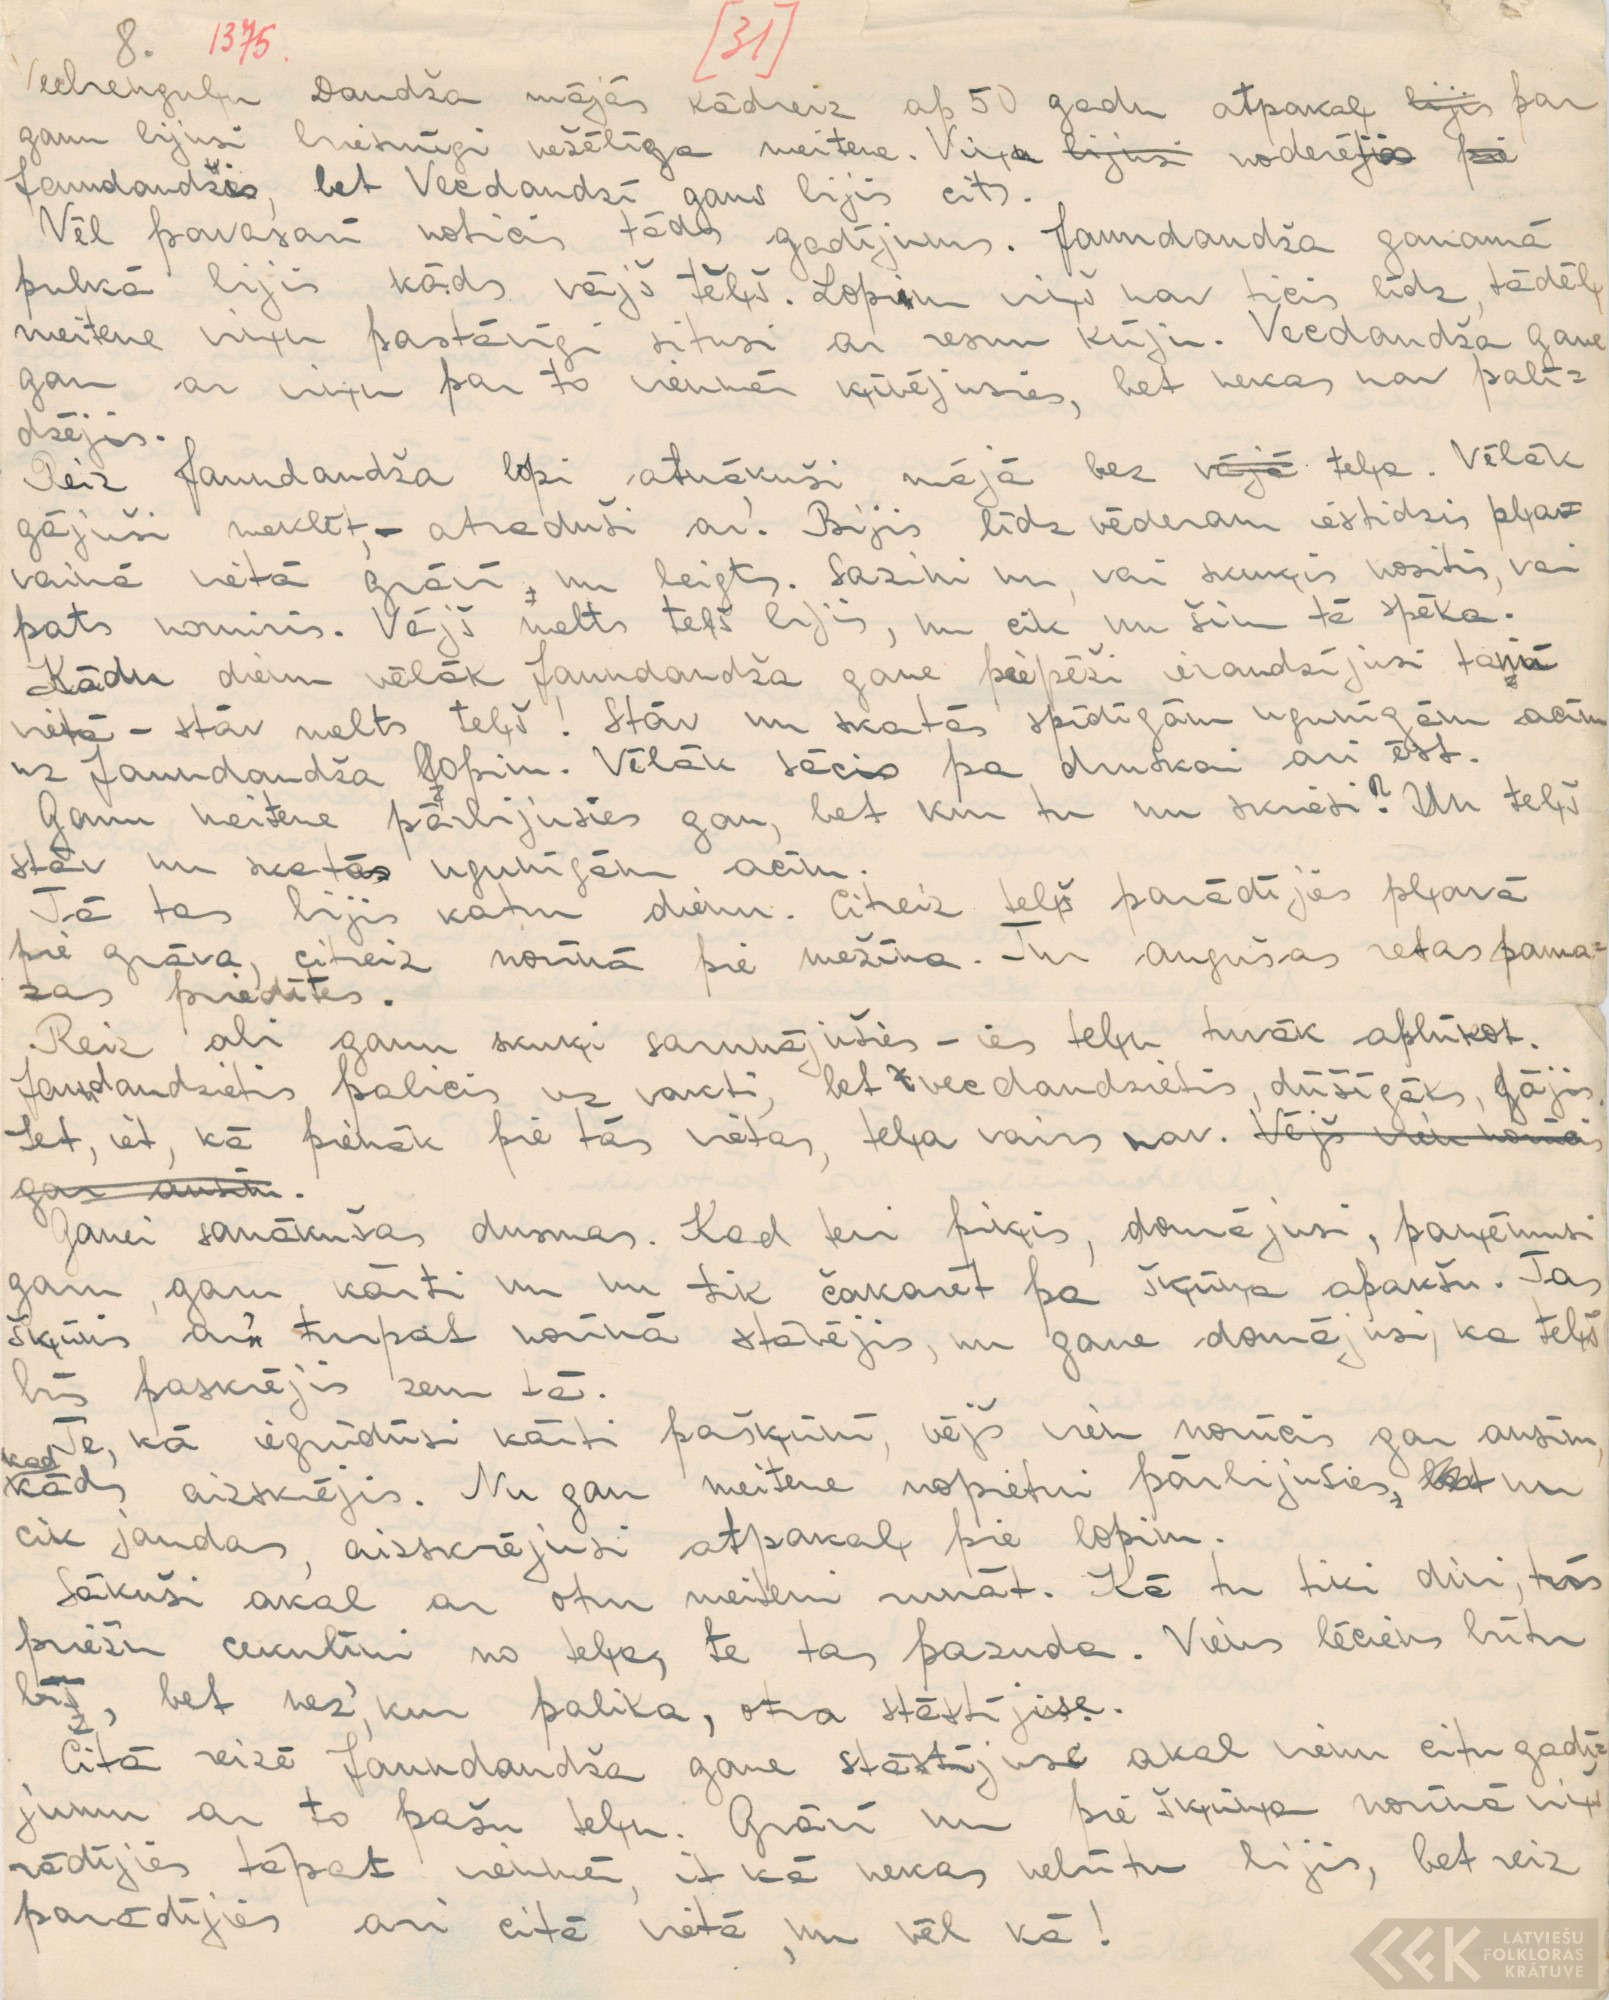 8. 1375. [31]
Vecrenguļu Dandža mājās kādreiz ap 50 gadu atpakaļ bijis par
ganu bijusi briesmīgi nežēlīga meitene. Viņa bijusi noderējis pie
Jaundandžis, bet Vecdandzī gans bijis cits.
Vēl pavasarī noticis tāds gadījums. Jaundandža ganamā
pulkā bijis kāds vājš teļš. Lopiem viņš nav ticis līdz, tādēļ
meitene viņu pastāvīgi situsi ar resnu kūju. Vecdandža gane
gan ar viņu par to vienmēr ķīvējusies, bet nekas nav palī=
dzējis.
Reiz Jaundandža lopi atnākuši mājā bez vājā teļa. Vēlāk
gājuši meklēt, - atraduši ar'. Bijis līdz vēderam iestidzis pļav=
vainā vietā grāvī, un beigts. Sazini nu, vai skuķis nositis, vai
pats nomiris. Vājš melts teļš bijis, nu cik nu šim tā spēka.
Kādu dienu vēlāk Jaundandža gane piepēži ieraudzījusi tanīnī
vietā - stāv melts teļš! Stāv un skatās spīdīgām ugunīgām acīm
uz Jaundandža lopim. Vēlāk sācis pa druskai ari ēst.
Ganu meitene pārbijusies gan, bet kur tu nu skriesi? Un teļš
stāv un skatās ugunīgām acīm.
Tā tas bijis katru dienu. Citreiz teļš parādījās pļavā
pie grāva, citreiz norinā pie mežiņa. Tur augušas retas pama=
zas priedītes.
Reiz abi ganu skuķi sarunājušies - ies teļu tuvāk aplūkot.
Jaundandzietis palicis uz vakti, bet vecdandzietis, dūšīgāks, gājis.
Iet, iet, kā pienāk pie tās vietas, teļa vairs nav. Vējš vien norūcis
gar ausīm.
Ganei sanākušas dusmas. Kad tevi piķis, domājusi, paņēmusi
garu, garu kārti un nu tik čakarēt pa šķūņa apakšu. Tas
šķūnis ar' turpat norinā stāvējis, un gane domājusi, ka teļš
būs paskrējis zem tā.
Te, kā iegrūdusi kārti pašķūnī, vējš vien norūcis gar ausīm,
kad
kāds aizskrējis. Nu gan meitene nopietni pārbijušies, bet un
cik jaudas, aizskrējusi atpakaļ pie lopim.
Sākuši akal ar otru meiteni runāt. Kā tu tiki divi, trīs
priežu cekulīni no teļa, te tas pazuda. Viens lēciens būtu
bīs, bet nez', kur palika, otra stāstījuse.
Citā reizē Jaundandža gane stāstījuse akal vienu citu gadī=
jumu ar to pašu teļu. Grāvī un pie šķūņa norinā viņš
rādījies tāpat vienmēr, it kā nekas nebūtu bijis, bet reiz
parādījies ari citā vietā, un vēl kā!
LATVIEŠU
FOLKLORAS
KRĀTUVE